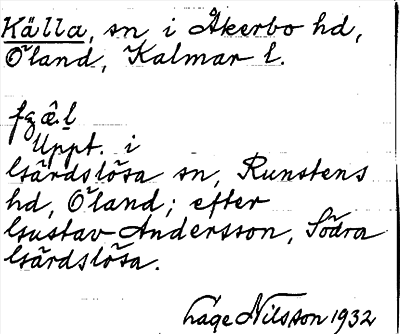 Källa, sn i Åkerbo hd,
Öland, Kalmar l.
Uppt. i
Gärdslösa sn, Runstens
hd, Öland; efter
Gustav Andersson, Södra
Gärdslösa.
Låge Nilsson 1932